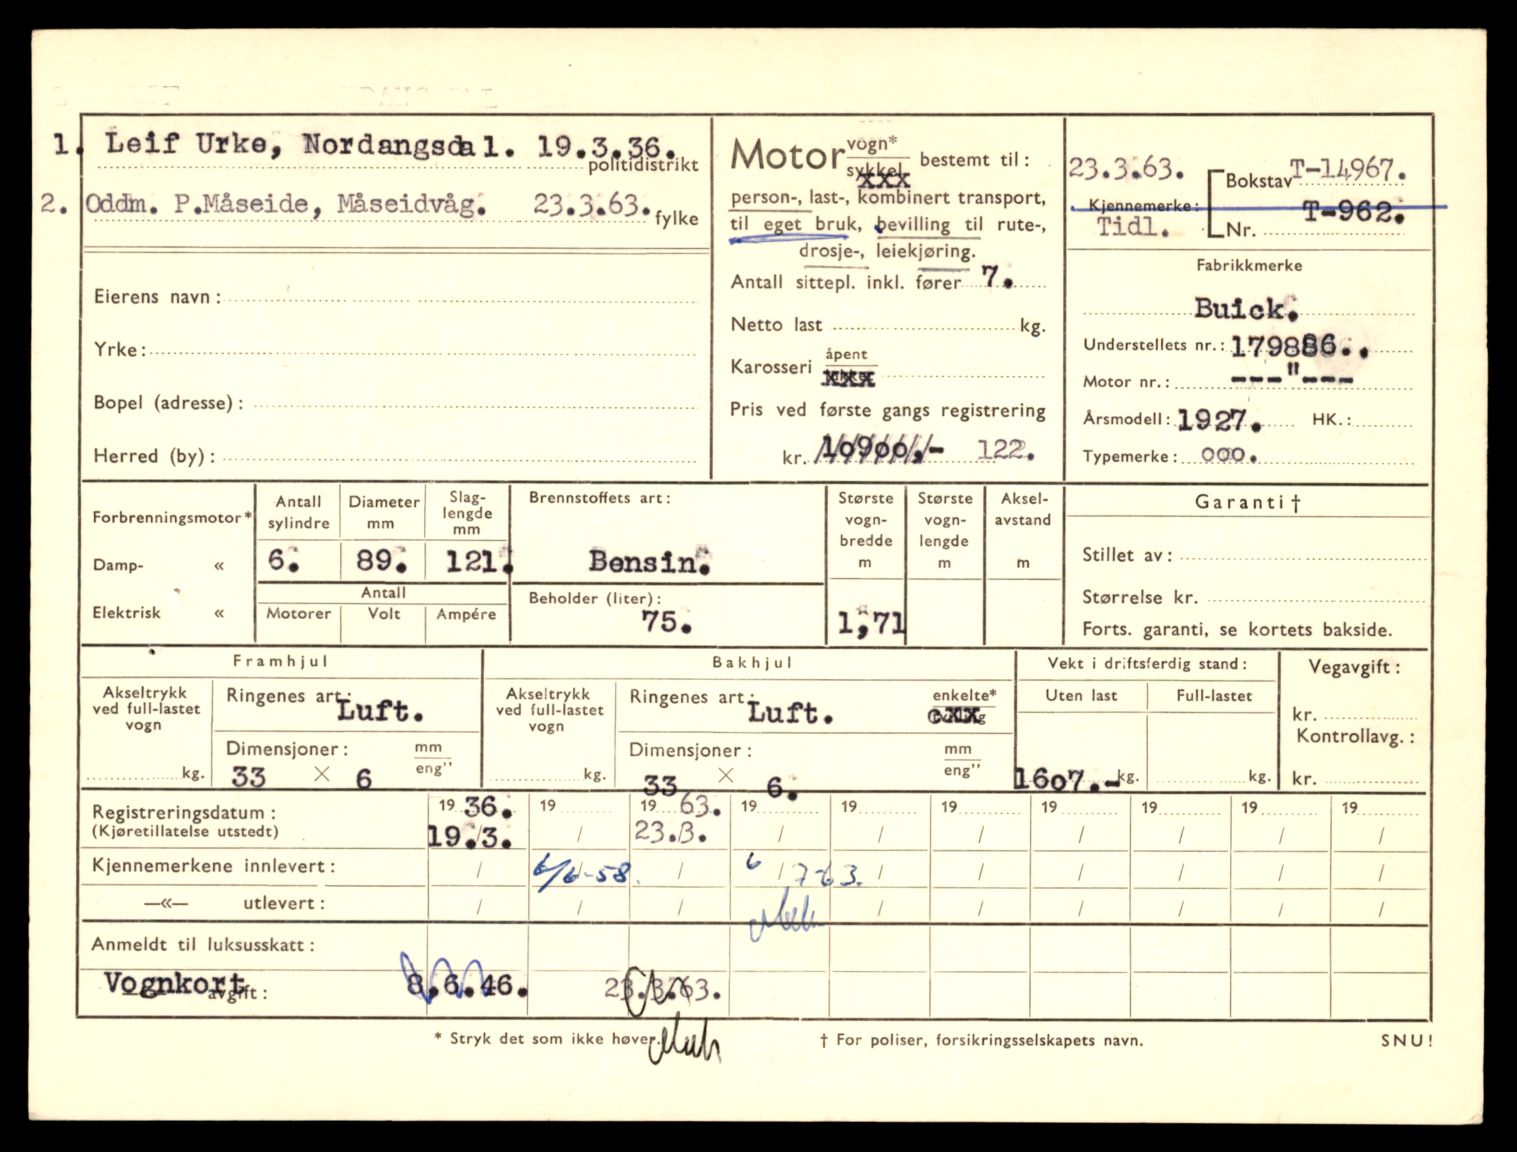 1. Leif Urke, Nordangsdal. 19.3.36.
politidistrikt
2. Oddm. P.Måseide, Måseidvåg. 23.3.63.
fylke
Eierens navn:
Yrke:
Bopel (adresse):
Herred (by):
Motor vogn*
sykkel xxx bestemt til:
person-, last-, kombinert transport,
til eget bruk, bevilling til rute-,
drosje-, leiekjøring.
Antall sittepl. inkl. fører 7.
Netto last kg.
Karosseri åpent
xxx
Pris ved første gangs registrering
kr. 10900,- 122.
23.3.63. Bokstav T-14967.
Kjennemerke: T-962.
Tidl. Nr.
Fabrikkmerke
Buick.
Understellets nr.: 179886..
Motor nr.: ---"---
Årsmodell: 1927. HK.:
Typemerke: ooo.
Forbrenningsmotor*
Damp- «
Elektrisk «
Antall sylindre
6.
Diameter mm
89.
Slag-lengde mm
121.
Antall
Motorer Volt Ampére
Brennstoffets art:
Bensin.
Beholder (liter):
75.
Største vogn-bredde m
1,71
Største vogn-lengde m
Aksel-avstand m
Garanti †
Stillet av:
Størrelse kr.
Forts. garanti, se kortets bakside.
Framhjul
Akseltrykk ved full-lastet vogn
kg.
Ringenes art: Luft.
Dimensjoner: mm
eng"
33 × 6
Bakhjul
Akseltrykk ved full-lastet vogn
kg.
Ringenes art: Luft. enkelte*
xxx
Dimensjoner: mm
eng"
33 × 6.
Vekt i driftsferdig stand:
Uten last Full-lastet
1607.- kg. kg.
Vegavgift:
kr.
Kontrollavg.:
kr.
Registreringsdatum: 19 36. 19 19 63. 19 19 19 19 19 19 19
(Kjøretillatelse utstedt) 19./3. / 23.3. / / / / / / /
Kjennemerkene innlevert: / 6/6-58. / 6/7-63. / / / / / /
—«— utlevert: / / / / / / / / /
Anmeldt til luksusskatt:
Vognkort avgift: 8.6.46. 23.3.63.
* Stryk det som ikke høver.
† For poliser, forsikringsselskapets navn.
SNU!